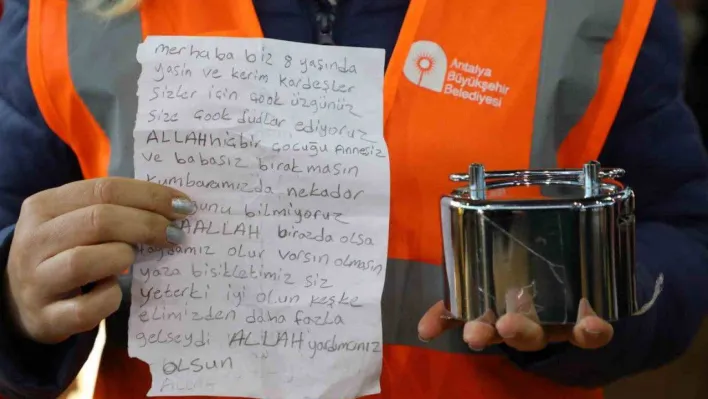 merhaba biz 8 yaşında
yasin ve kerim kardeşler
Sizler için Çook üzgünüz
size Çook dudlar ediyoruz
ALLAH hiçbir Çocuğu Annesiz
ve babasız bırakmasın
kumbaramızda nekador
bilmiyoruz
ALLAH birazda olsa
faydamız olur varsın olmasın
yaza bisikletimiz siz
yeterki iyi olun keşke
elimizden daha fazla
gelseydi ALLAH yardımcınız
OLSUN
Antalya
Büyükşehir
Belediyesi